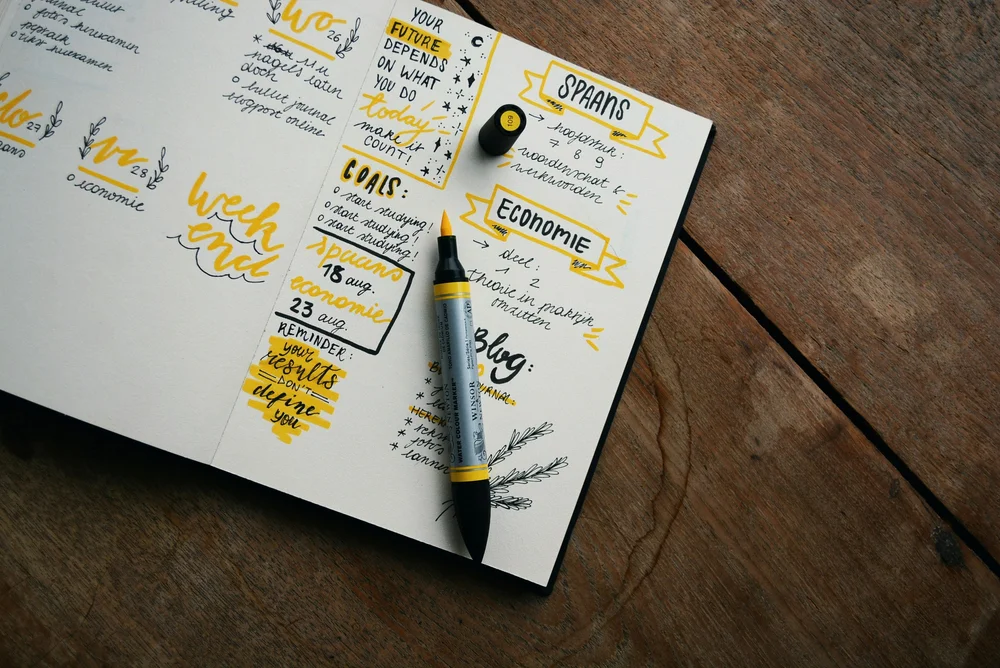 o foto's herexamen
herexamen
wo 26
* 11 u
nagels laten
o bullet journal
blogpost online
do 27
vr 28
o economie
week
end
YOUR
FUTURE
DEPENDS
ON WHAT
YOU DO
today
make it
COUNT!
GOALS:
o start studying!
o start studying!
o start studying!
spaans
18 aug.
economie
23 aug.
REMINDER:
your
results
DON'T
define
you
SPAANS
→ hoofdstuk:
7 8 9
woordenschat &
werkwoorden
ECONOMIE
→ deel:
1 2
theorie in praktijk
omzetten
Blog:
* tekst
* foto's
* banner
609
WINSOR
WATER COLOUR MARKER